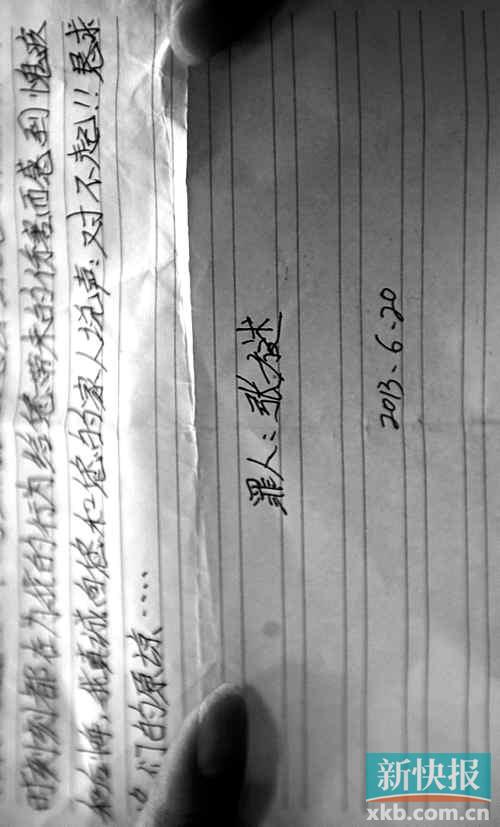 时刻刻都在为我的行为给您带来的伤害而感到愧疚
和后悔，我真诚向您和您的家人说声：对不起!!恳求
们的原谅.....
罪人：张
2013.6.20
新快报
xkb.com.cn